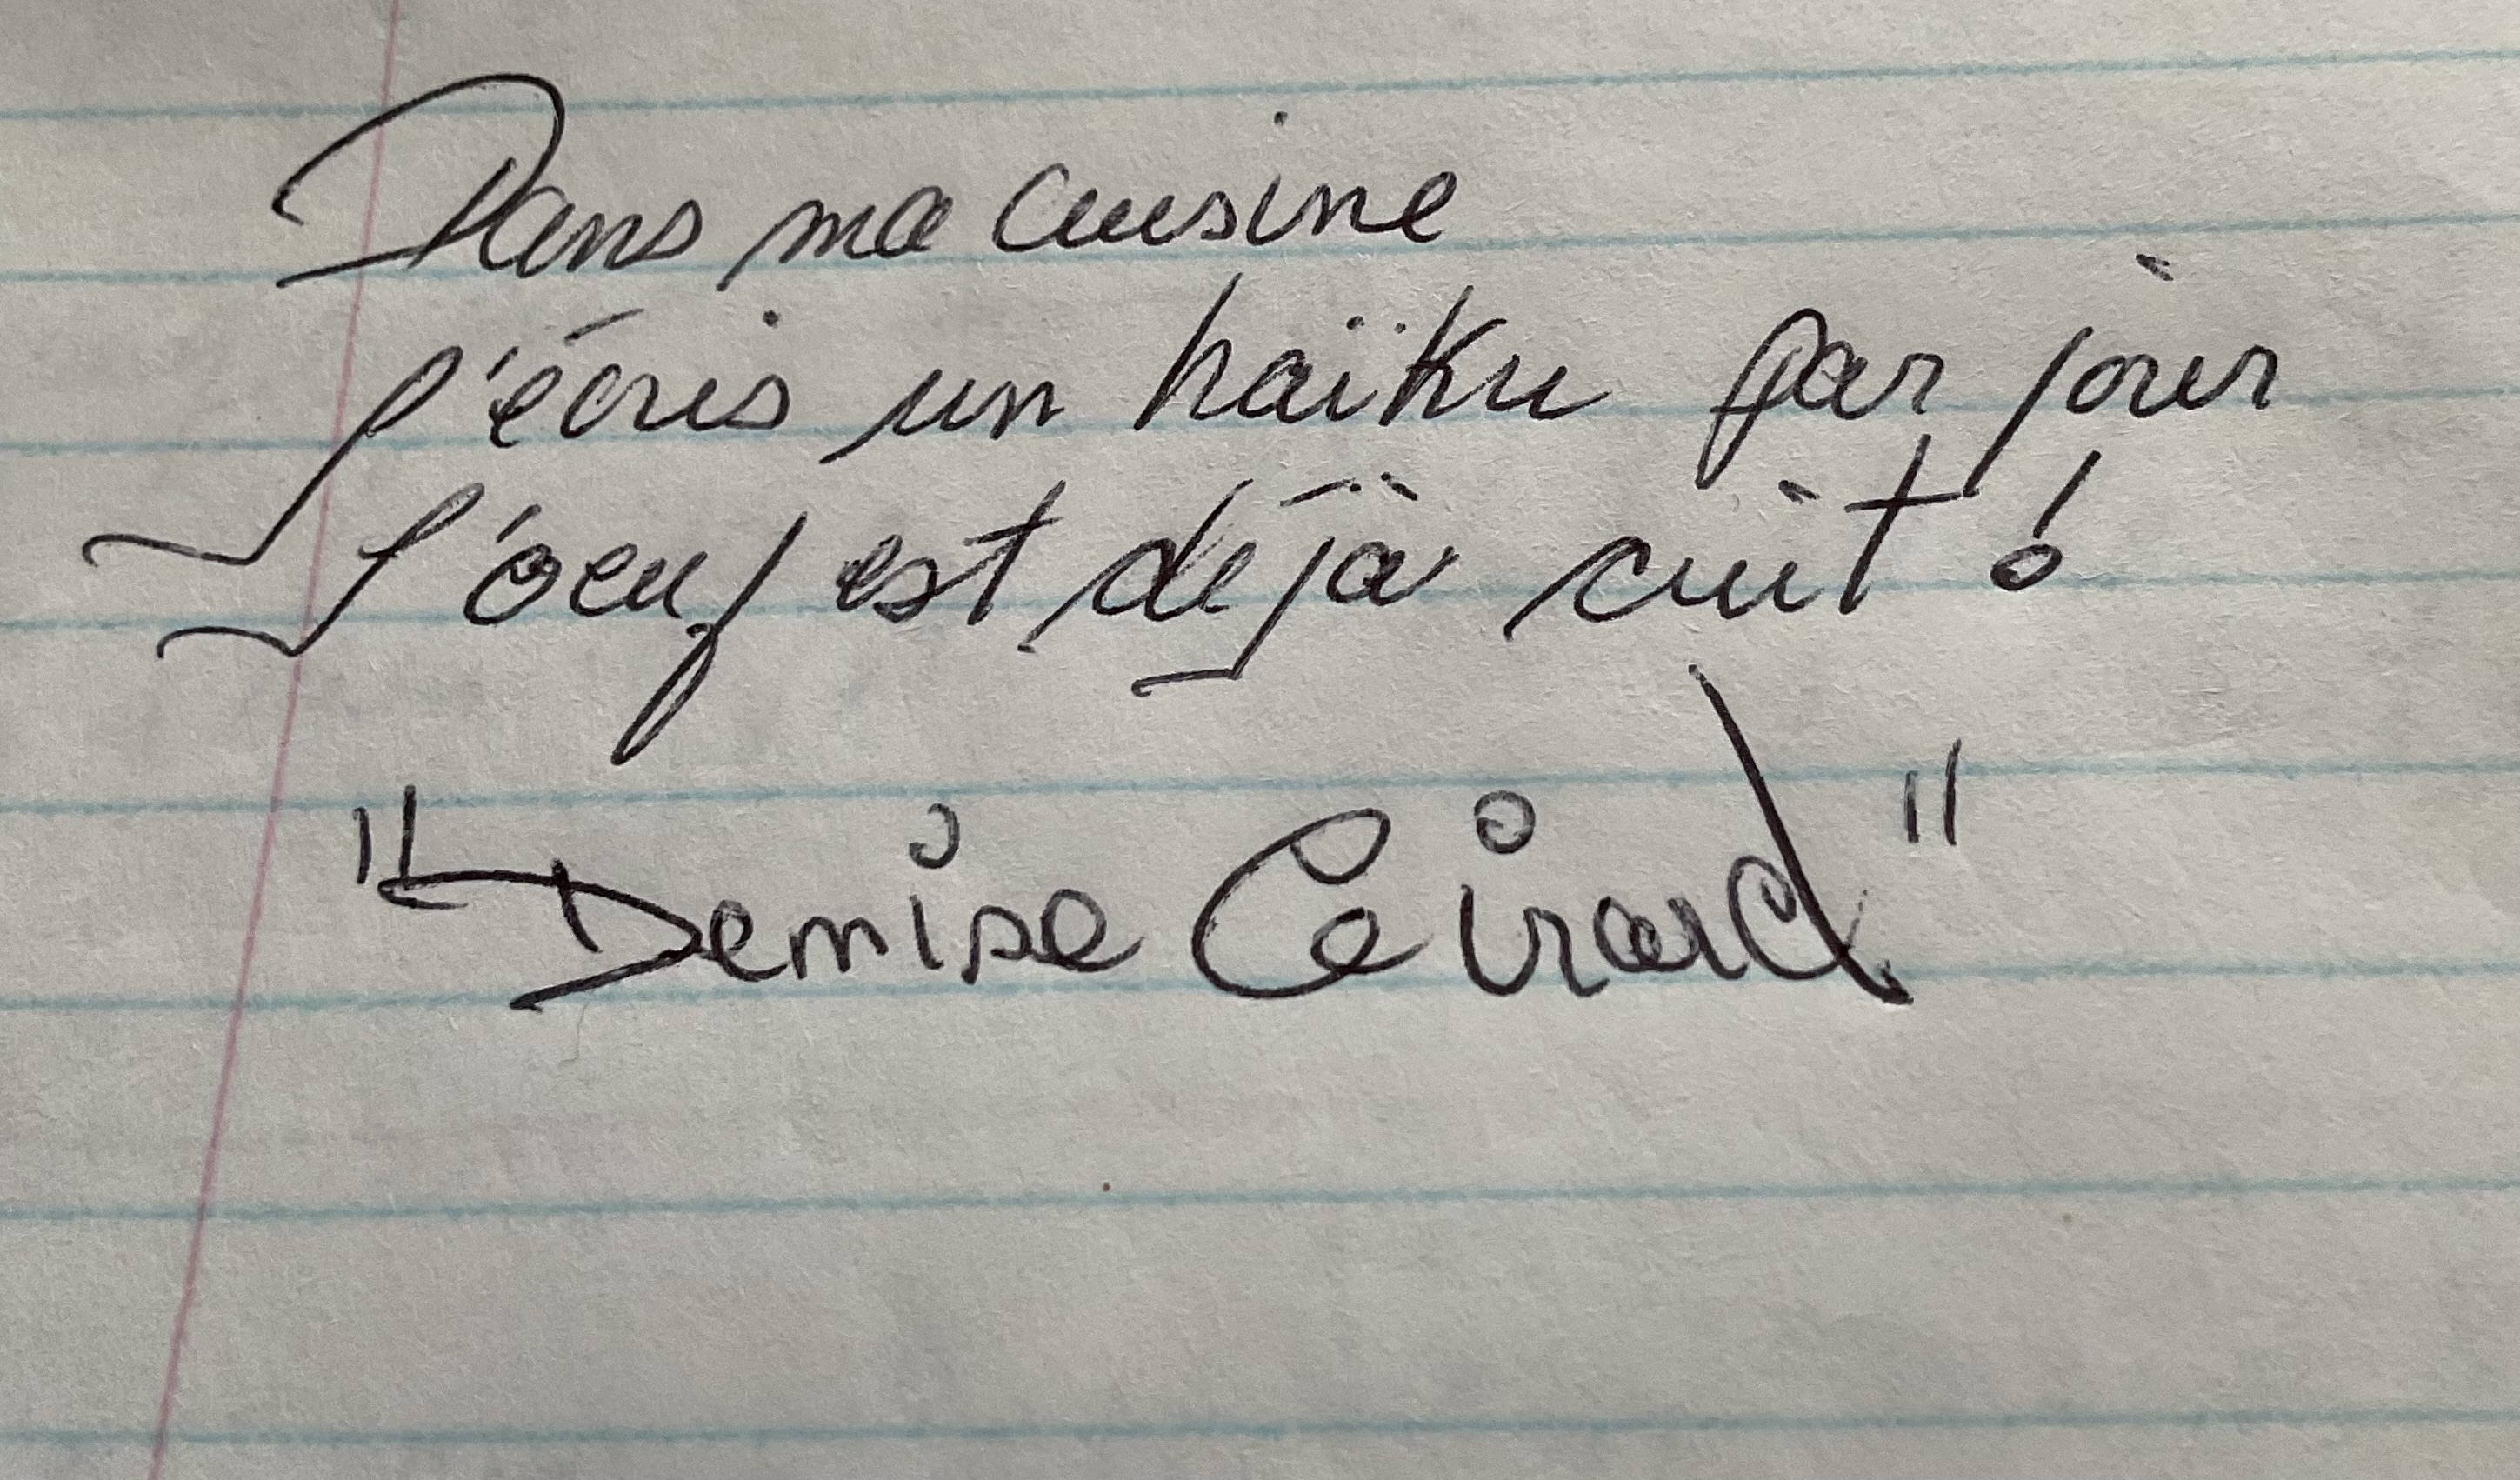 Dans ma cuisine
j'écris un haïku par jour
l'oeuf est déjà cuit !
"Denise Girard"